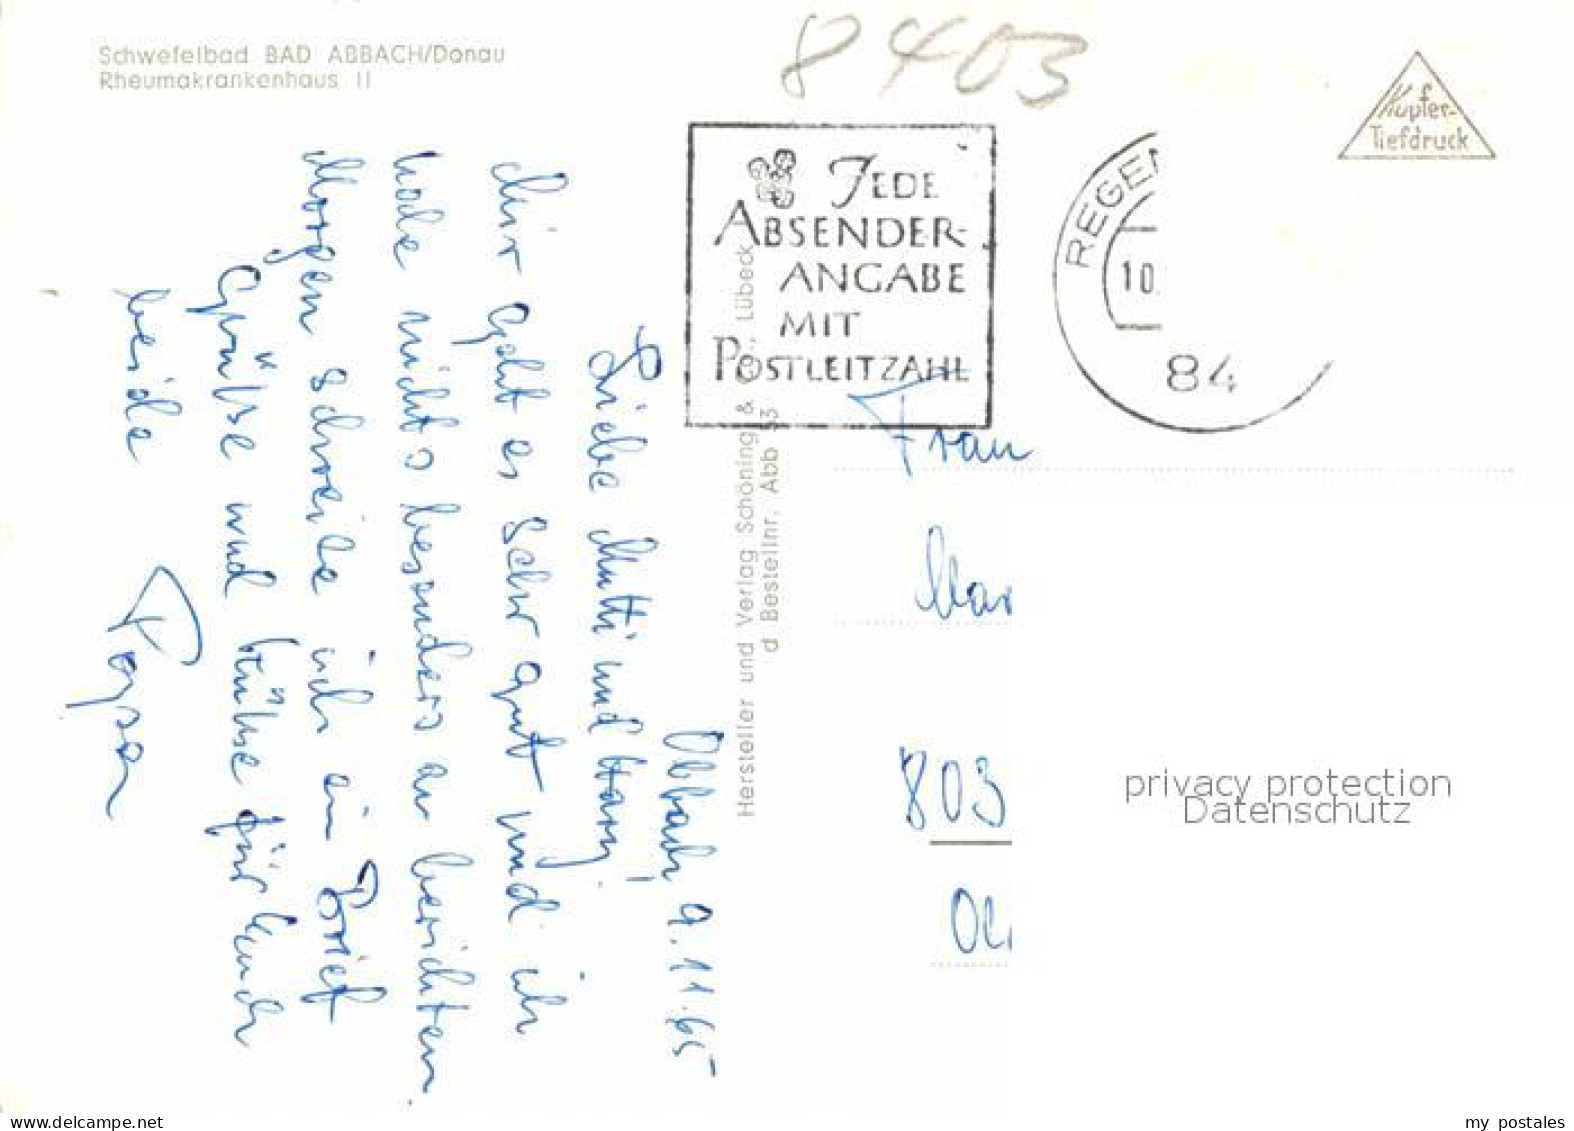 Schwefelbad BAD ABBACH/Donau
Rheumakrankenhaus II
8403
JEDE
ABSENDER-
ANGABE
MIT
POSTLEITZAHL
REGEN
10.
84
Kupfer-
Tiefdruck
Abbach, 9.11.65
Liebe Mutti und Harry!
Mir geht es sehr gut und ich
habe nichts besonders zu berichten.
Morgen schreibe ich ein Brief
Grüße und Küße für Euch
beide
Papa
Hersteller und Verlag Schöning & Co., Lübeck
Bestellnr. Abb 33
Frau
Mar
803
privacy protection
Datenschutz
my postales